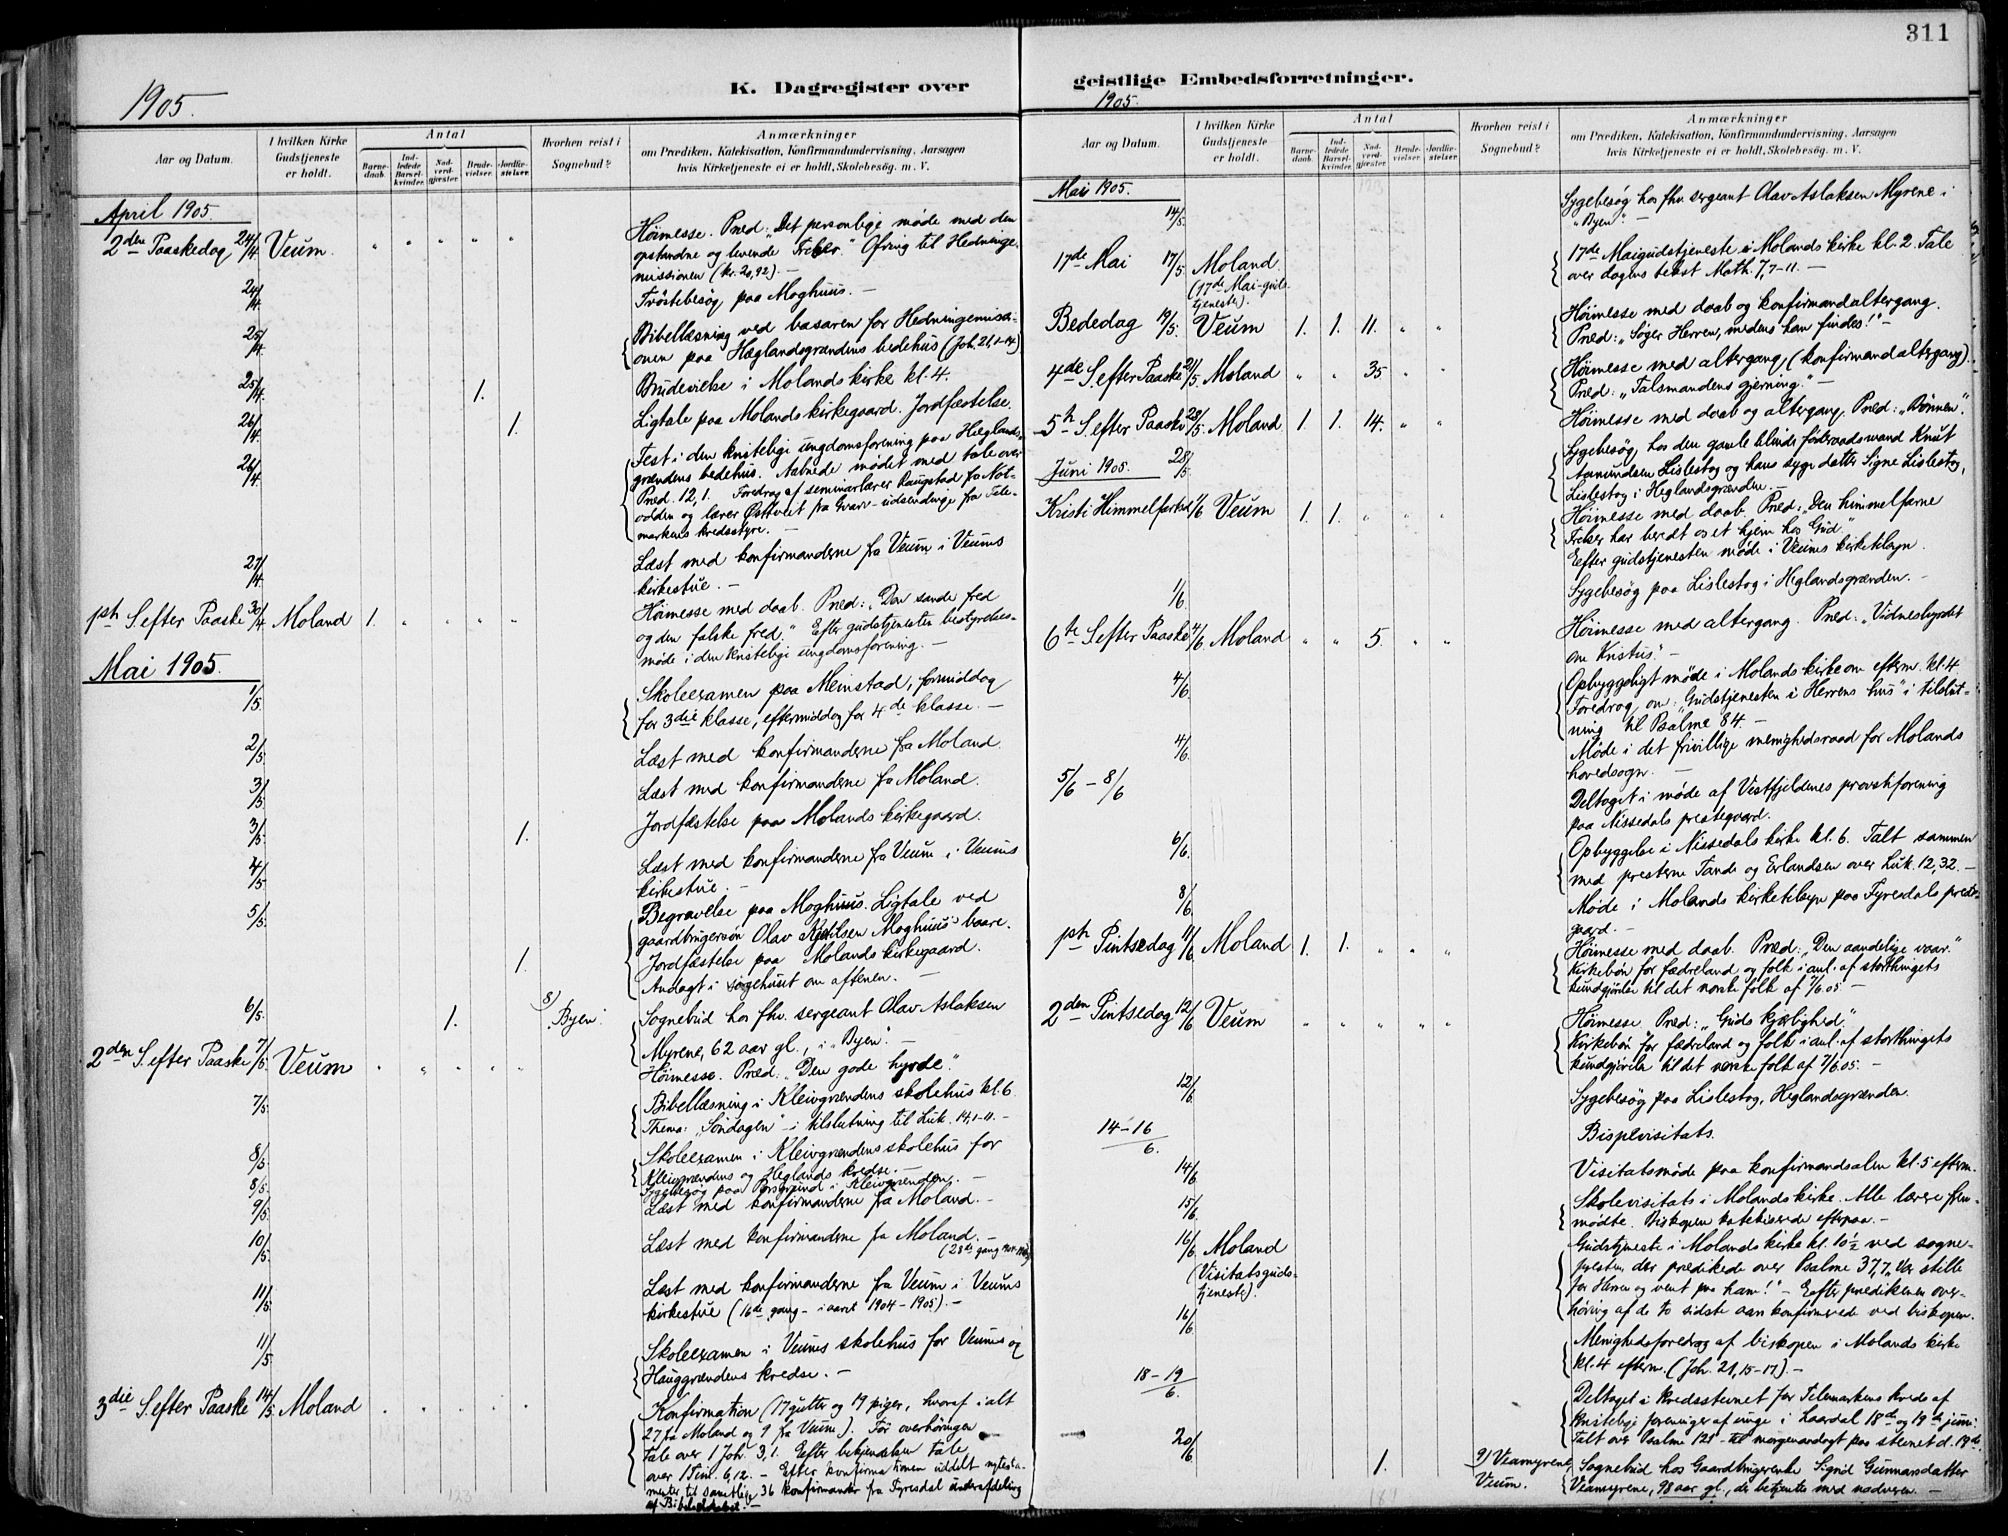 311
1905.
K. Dagregister over
geistlige Embedsforretninger.
1905.
Aar og Datum.
I hvilken Kirke Gudstjeneste er holdt.
Antal
Barnedaab.
Indledede Barselkvinder.
Nadverdgjæster.
Brudevielser.
Jordfæstelser.
Hvorhen reist i Sognebud?
Anmærkninger
om Prædiken, Katekisation, Konfirmandundervisning, Aarsagen
hvis Kirketjeneste ei er holdt, Skolebesøg. m. V.
April 1905.
2den Paaskedag 24/4 Veum. " " " " " Høimesse. Præd: "Det personlige møde med den
opstandne og levende Frelser." Ofring til Hedninge-
missionen (kr. 20,92). —
24/4 Trøstebesøg paa Moghuus. —
25/4 Bibellæsning ved basaren for Hedningemissi-
onen paa Hæglandsgrændens bedehus (Joh. 21,1-14)
25/4. 1. Brudevielse i Molands kirke kl. 4.
26/4. 1. Ligtale paa Molands kirkegaard. Jordfæstelse.
26/4. Fest i den kristelige ungdomsforening paa Hæglands-
grændens bedehus. Aabnede mødet med tale over
Præd. 12,1. Foredrag af seminarlærer Haugstad fra Not-
odden og lærer Østtveit fra Gvarv - udsendinge fra Tele-
markens kredsstyre. —
27/4. Læst med konfirmanderne fra Veum i Veums
kirkestue. —
1ste S. efter Paaske 30/4 Moland 1. " " " " Høimesse med daab. Præd: "Den sande fred
og den falske fred." Efter gudstjenesten bestyrelses-
møde i den kristelige ungdomsforening. —
Mai 1905.
1/5 Skoleexamen paa Meinstad, formiddag
for 3die klasse, eftermiddag for 4de klasse. —
2/5. Læst med konfirmanderne fra Moland.
3/5 Læst med konfirmanderne fra Moland.
3/5. 1. Jordfæstelse paa Molands kirkegaard.
4/5 Læst med konfirmanderne fra Veum i Veums
kirkestue. —
5/5. 1. Begravelse paa Moghuus. Ligtale ved
gaardbrugersøn Olav Kjetilsen Moghuus' baare.
Jordfæstelse paa Molands kirkegaard.
Andagt i sørgehuset om aftenen. —
6/5. 1. 8) "Byen". Sognebud hos fhv. sergeant Olav Aslaksen
Myrene, 62 aar gl., i "Byen". —
2den S. efter Paaske 7/5. Veum " " " " " Høimesse. Præd: "Den gode hyrde."
7/5. Bibellæsning i Kleivgrændens skolehus kl. 6
Thema: "Søndagen" - i tilslutning til Luk. 14,1-11. —
8/5. Skoleexamen i Kleivgrændens skolehus for
Kleivgrændens og Heglands kredse. —
8/5. Sygebesøg paa i Kleivgrænden. —
9/5. Læst med konfirmanderne fra Moland. —
10/5. Læst med konfirmanderne fra Moland. —
(28de gang 1904-1905)
11/5. Læst med konfirmanderne fra Veum i Veums
kirkestue (16de gang - i aaret 1904-1905). —
11/5. Skoleexamen i Veums skolehus for Veums og
Hauggrændens kredse. —
3die S. efter Paaske 14/5. Moland " " " " " Konfirmation (17 gutter og 19 piger, hvoraf ialt
27 fra Moland og 9 fra Veum). Før overhøringen
tale over 1 Joh. 3,1. Efter bekjendelsen tale
over 1 Tim. 6,12. — Efter konfirmationen uddelt nytesta-
menter til samtlige 36 konfirmander fra Tyresdal underafdeling
af Bibelselskabet. —
Aar og Datum.
I hvilken Kirke Gudstjeneste er holdt.
Antal
Barnedaab.
Indledede Barselkvinder.
Nadverdgjæster.
Brudevielser.
Jordfæstelser.
Hvorhen reist i Sognebud?
Anmærkninger
om Prædiken, Katekisation, Konfirmandundervisning, Aarsagen
hvis Kirketjeneste ei er holdt, Skolebesøg. m. V.
Mai 1905.
14/5. Sygebesøg hos fhv. sergeant Olav Aslaksen Myrene i
"Byen". —
17de Mai 17/5 Moland
(17de Mai-guds-
tjeneste). 17de Maigudstjeneste i Molands kirke kl. 2. Tale
over dagens tekst Math. 7,7-11. —
Bededag 19/5. Veum 1. 1. 11. " " Høimesse med daab og konfirmandaltergang.
Præd: "Søger Herren, medens han findes!" —
4de S. efter Paaske 21/5 Moland " " 35 " " Høimesse med altergang, (konfirmandaltergang).
Præd: "Talsmandens gjerning." —
5te S. efter Paaske 28/5. Moland 1. 1. 14. " " Høimesse med daab og altergang. Præd: "Bønnen".
28/5 Sygebesøg hos den gamle blinde føderaadsmand Knut
Aamundsen Lislestog og hans syge datter Signe Lislestog,
Lislestog i Heglandsgrænden. —
Juni 1905.
Kristi Himmelfartsd. 1/6 Veum 1. 1. " " " Høimesse med daab. Præd: "Den himmelfarne
Frelser har beredt os et hjem hos Gud".
Efter gudstjenesten møde i Veums kirketilsyn.
1/6. Sygebesøg paa Lislestog i Heglandsgrænden. —
6te S. efter Paaske 4/6 Moland " " 5. " " Høimesse med altergang. Præd: "Vidnesbyrdet
om Kristus". —
4/6. Opbyggeligt møde i Molands kirke om efterm. kl. 4
Foredrag om: "Gudstjenesten i Herrens hus" i tilslut-
ning til Psalme 84. —
4/6. Møde i det frivillige menighedsraad for Molands
hovedsogn. —
5/6 - 8/6 Deltaget i møde af Vestfjeldenes provstiforening
paa Nissedals prestegaard.
6/6. Opbyggelse i Nissedals kirke kl. 6. Talt sammen
med presterne Tande og Erlandsen over Luk. 12,32. —
8/6. Møde i Molands kirketilsyn paa Tyresdals preste-
gaard. —
1ste Pintsedag 11/6 Moland 1. 1. " " " Høimesse med daab. Præd: "Den aandelige vaar."
Kirkebøn for fædreland og folk i anl. af storthingets
kundgjørelse til det norske folk af 7/6.05 —
2den Pintsedag 12/6 Veum " " " " " Høimesse. Præd: "Guds kjærlighed."
Kirkebøn for fædreland og folk i anl. af storthingets
kundgjørelse til det norske folk af 7/6.05. —
12/6 Sygebesøg paa Lislestog, Heglandsgrænden.
14-16/6. Bispevisitats.
14/6. Visitatsmøde paa konfirmandsalen kl. 5 efterm.
15/6. Skolevisitats i Molands kirke. Alle lærere frem-
mødte. Biskopen katekiserede efterpaa. —
16/6 Moland
(Visitatsguds-
tjeneste). Gudstjeneste i Molands kirke kl. 10 1/2 ved sogne-
presten, der prædikede over Psalme 37,7 "Vær stille
for Herren og vent paa ham!" — Efter prædikenen over-
høring af de to sidste aars konfirmerede ved biskopen.
16/6. Menighedsforedrag af biskopen i Molands kirke
kl. 4 efterm. (Joh. 21,15-17). —
18-19/6. Deltaget i kredsstevnet for Telemarkens kreds af
kristelige foreninger af unge i Laardal 18de og 19de juni.
Talt over Psalme 121 - til morgenandagt paa stevnet d. 19de.
20/6 1. 9) Veamyrene,
Veum. Sognebud hos Gaardbrugerenke Sigrid Gunnarsdatter
Veamyrene, 98 aar gl., der betjentes med nadveren. —